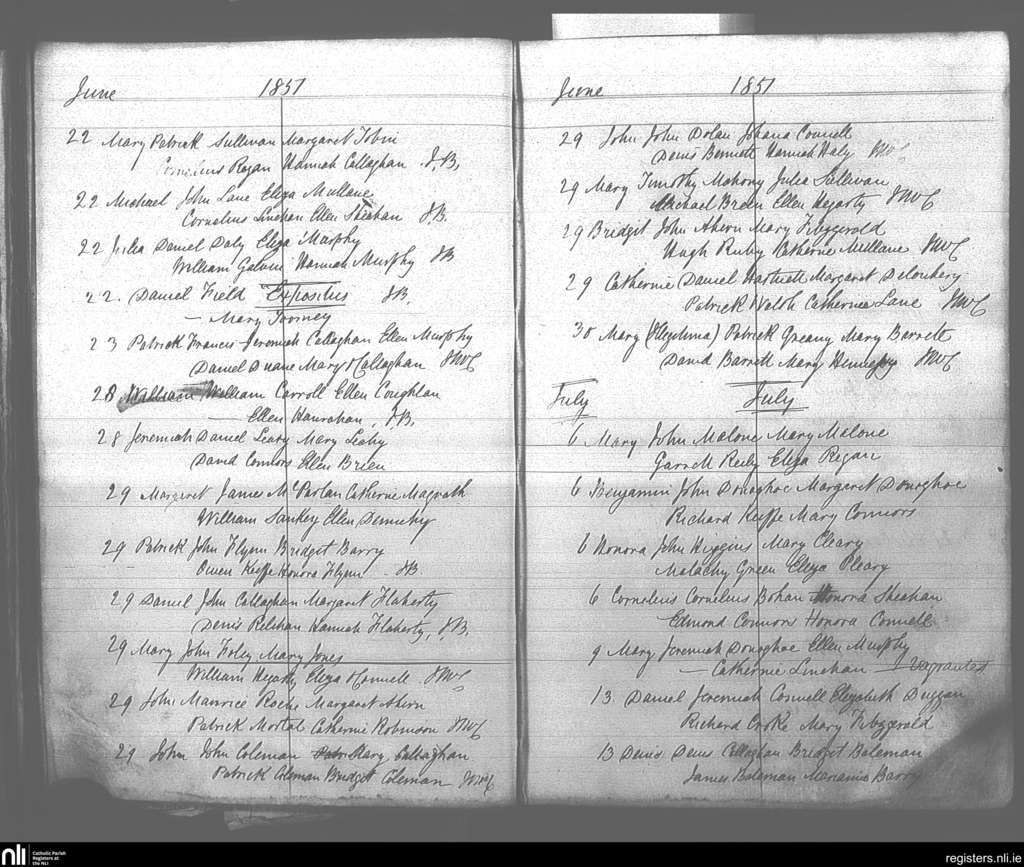 June 1851
22 Mary Patrick Sullivan Margaret Tobin
Cornelius Regan Hannah Callaghan J.B.
22 Michael John Lane Eliza Mullane
Cornelius Linehan Ellen Sheahan JB.
22 Julia Daniel Daly Eliza Murphy
William Galvin Hannah Murphy JB
22. Daniel Field Expositus JB.
— Mary Toomey
23 Patrick Francis Jeremiah Callaghan Ellen Murphy
Daniel Duane Mary O'Callaghan
28 William William Carroll Ellen Coughlan
— Ellen Hanrahan, J.B.
28 Jeremiah Daniel Leary Mary Leahy
David Connors Ellen Brien
29 Margaret James Catherine Magrath
William Sankey Ellen
29 Patrick John Flynn Bridget Barry
Owen Keeffe Honora Flynn JB.
29 Daniel John Callaghan Margaret Flaherty
Denis Relihan Hannah Flaherty, J.B.
29 Mary John Foley Mary Jones
William Hegarty Eliza O'Connell
29 John Maurice Roche Margaret Ahern
Patrick Catherine Robinson
29 John John Coleman Mary Callaghan
Patrick Coleman Bridget Coleman
June 1851
29 John John Dolan Johana Connell
Denis Bennett Hannah Haly
29 Mary Timothy Mahony Julia Sullivan
Michael Breen Ellen Hegarty
29 Bridget John Ahern Mary Fitzgerald
Hugh Ruby Catherine Mullane
29 Catherine Daniel Hartnett Margaret Delouhery
Patrick Walsh Catherine Lane
30 Mary (Illegitima) Patrick Greany Mary Barrett
David Barrett Mary Hennessy
July July
6 Mary John Malone Mary Malone
Garrett Reily Eliza Regan
6 Benjamin John Donoghoe Margaret Donoghoe
Richard Keeffe Mary Connors
6 Honora John Higgins Mary Cleary
Malachy Green Eliza Cleary
6 Cornelius Cornelius Bohan Honora Sheahan
Edmond Connors Honora Connell
9 Mary Jeremiah Donoghoe Ellen Murphy
— Catherine Linehan — Vagrantes
13 Daniel Jeremiah Connell Elizabeth Duggan
Richard Croke Mary Fitzgerald
13 Denis Denis Callaghan Bridget Bateman
James Bateman Marianne Barry
nli Catholic Parish
Registers at
the NLI
registers.nli.ie